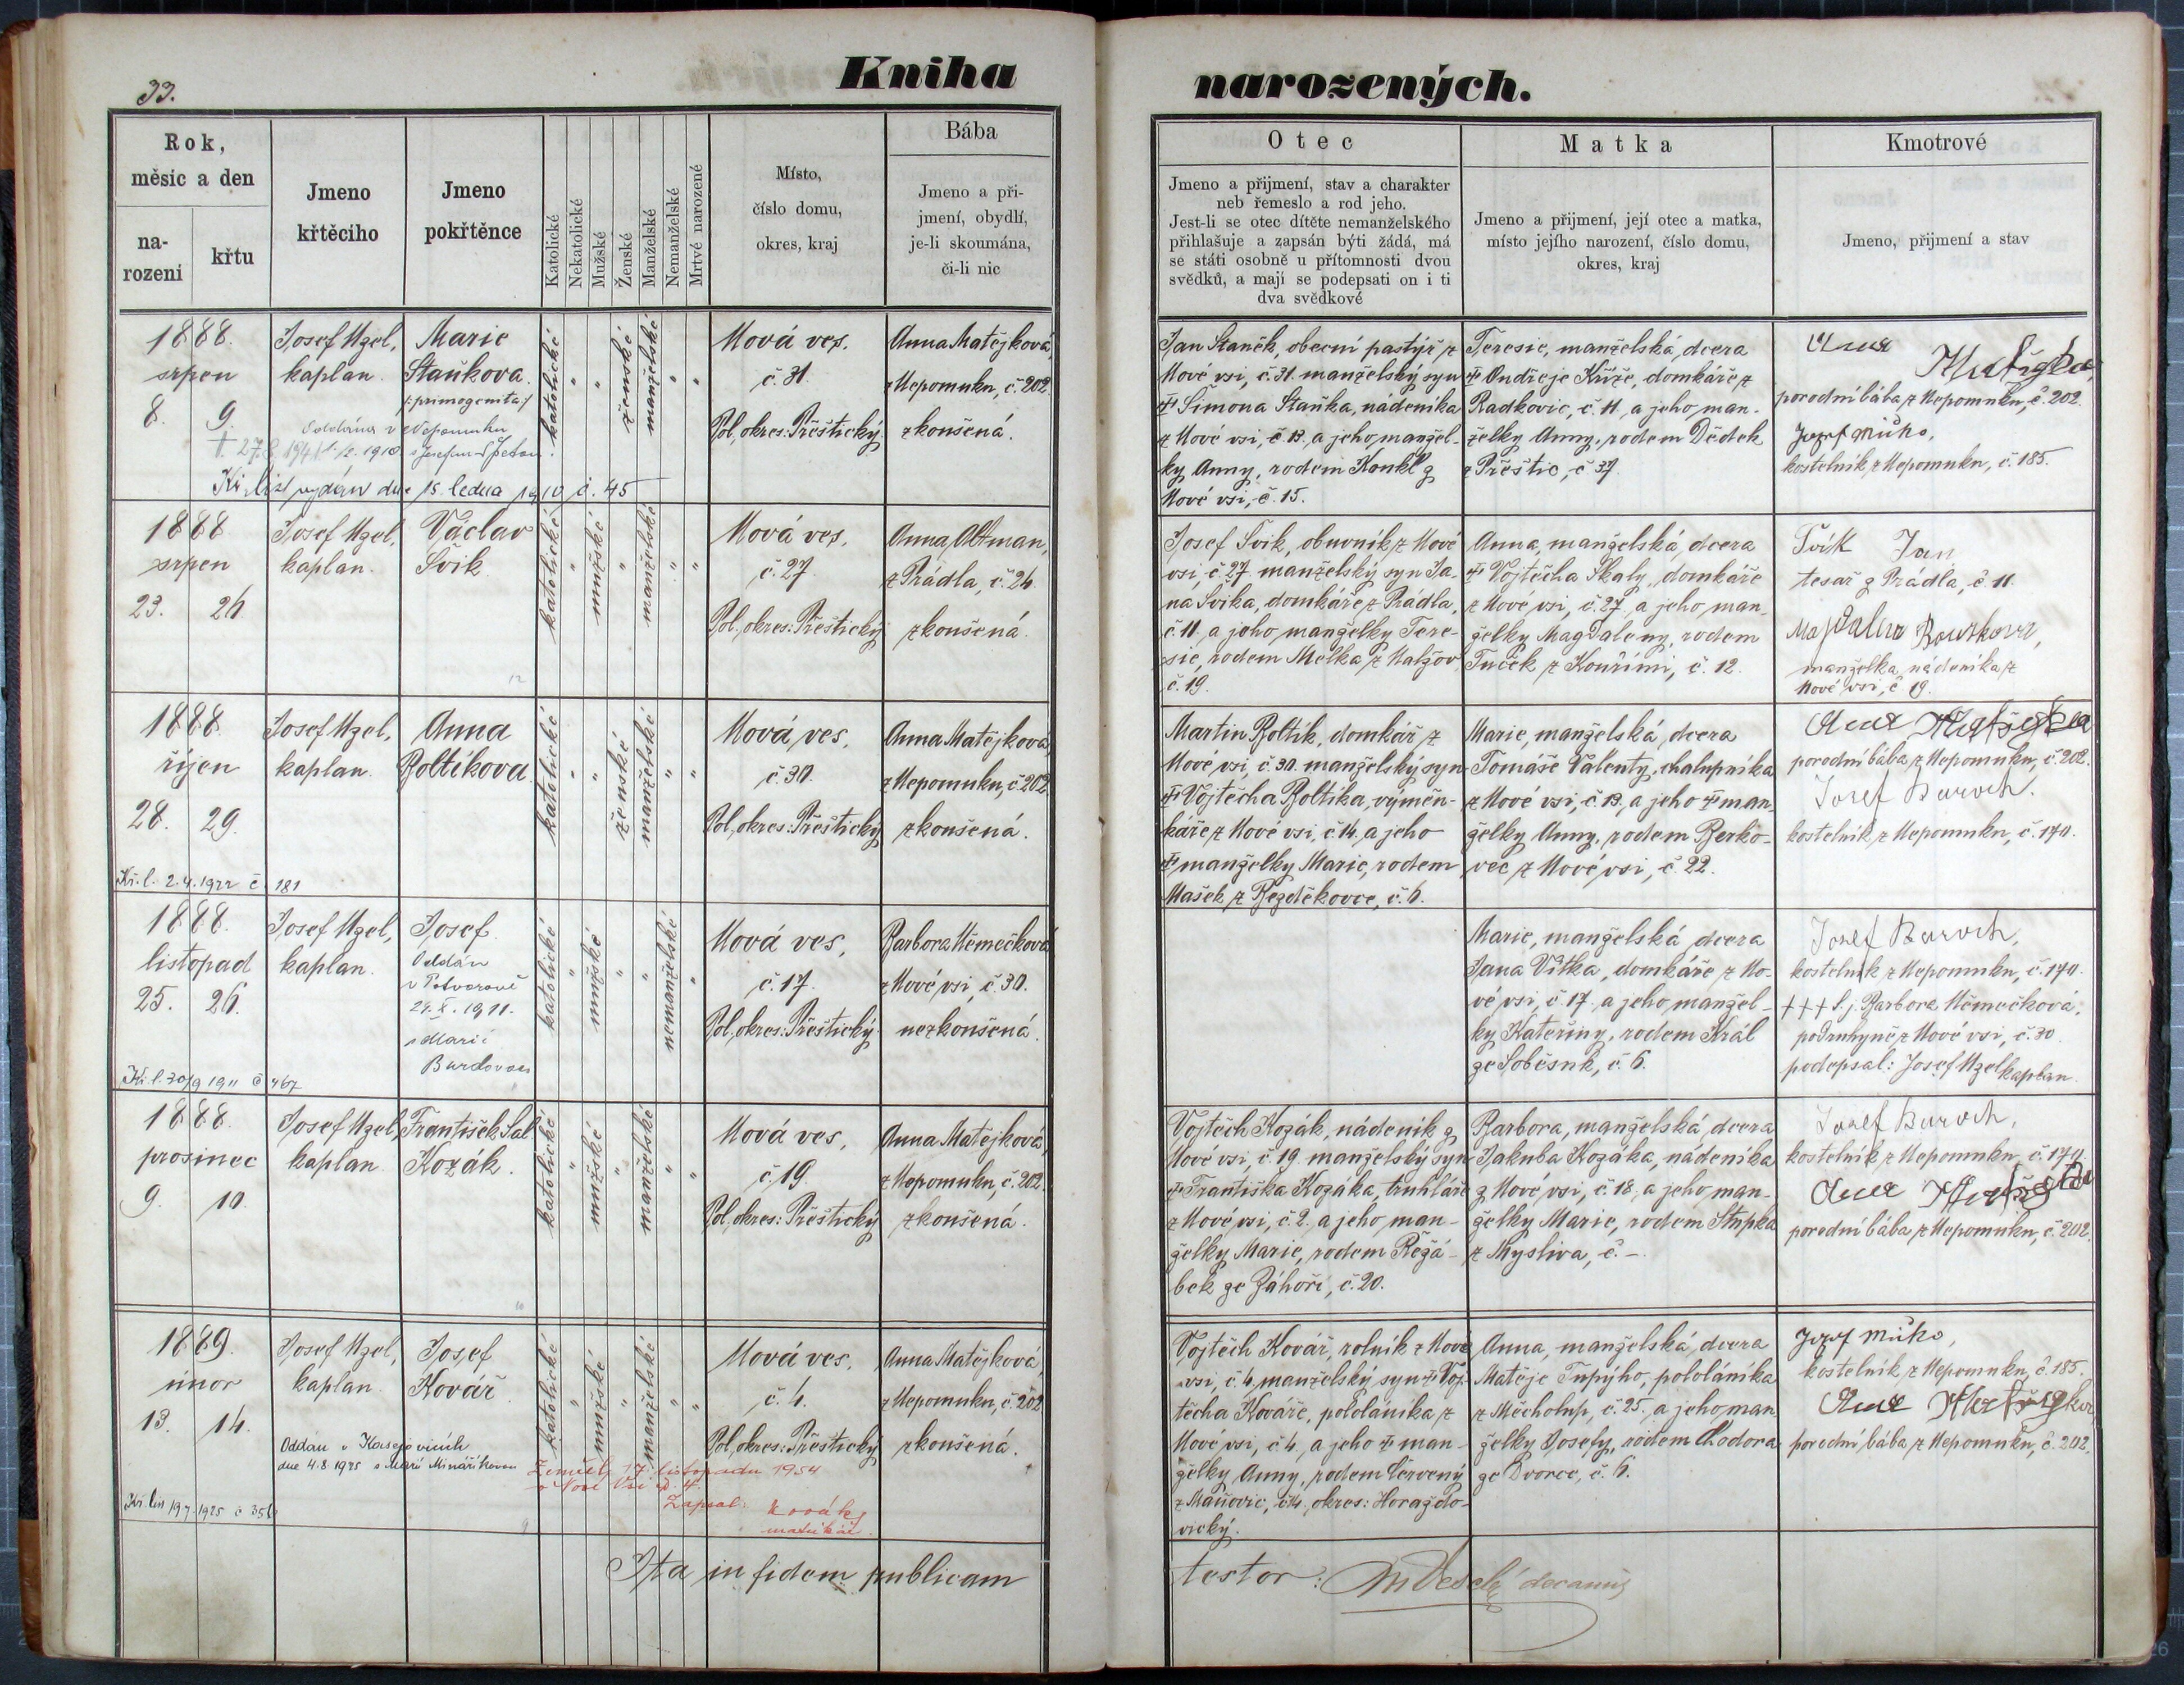 33.
Kniha
narozených.
Rok,
měsic a den
na-
rozeni
křtu
Jmeno
křtěciho
Jmeno
pokřtěnce
Katolické
Nekatolické
Mužské
Ženské
Manželské
Nemanželské
Mrtvé narozené
Místo,
číslo domu,
okres, kraj
Bába
Jmeno a při-
jmení, obydlí,
je-li skoumána,
či-li nic
Otec
Jmeno a přijmení, stav a charakter
neb řemeslo a rod jeho.
Jest-li se otec dítěte nemanželského
přihlašuje a zapsán býti žádá, má
se státi osobně u přítomnosti dvou
svědků, a mají se podepsati on i ti
dva svědkové
Matka
Jmeno a přijmení, její otec a matka,
místo jejího narození, číslo domu,
okres, kraj
Kmotrové
Jmeno, přijmení a stav
1888.
srpen
8. 9.
Josef Uzel,
kaplan.
Marie
Staňkova.
/:primogenita:/
Oddána v Nepomuku
Kř. list vydán dne 15. ledna 1910 č. 45
katolické
" "
ženské
manželské
" "
Nová ves.
č. 31.
Pol. okres: Přeštický
Anna Matějková,
z Nepomuku, č. 202.
zkoušená.
Jan Staněk, obecní pastýř z
Nové vsi, č. 31. manželský syn
† Šimona Staňka, nádeníka
z Nové vsi, č. 13, a jeho manžel-
ky Anny, rodem Konkl z
Nové vsi, č. 15.
Teresie, manželská dcera
† Ondřeje Kříže, domkáře z
Radkovic, č. 11, a jeho man-
želky Anny, rodem Dědek
z Přeštic, č. 37.
porodní bába z Nepomuku, č. 202.
kostelník z Nepomuku, č. 185.
1888.
srpen
23. 26.
Josef Uzel,
kaplan.
Václav
Švik
katolické
"
mužské
"
manželské
" "
Nová ves.
č. 27.
Pol. okres: Přeštický
Anna Altman,
z Prádla, č. 24.
zkoušená.
Josef Švik, obuvník z Nové
vsi, č. 27. manželský syn Ja-
na Švika, domkáře z Prádla,
č. 11, a jeho manželky Tere-
sie, rodem Melka z
č. 19.
Anna, manželská dcera
† Vojtěcha Skaly, domkáře
z Nové vsi, č. 27, a jeho man-
želky Magdaleny, rodem
Tuček z Kouřimi, č. 12.
Švík Jan
tesař z Prádla, č. 11.
manželka nádeníka z
Nové vsi, č. 19.
1888.
říjen
28. 29.
Kř. l. 2.4.1922 č. 181
Josef Uzel,
kaplan.
Anna
Boltíkova.
katolické
" "
ženské
manželské
" "
Nová ves.
č. 30.
Pol. okres: Přeštický
Anna Matějková,
z Nepomuku, č. 202.
zkoušená.
Martin Boltík, domkář z
Nové vsi, č. 30. manželský syn
† Vojtěcha Boltíka, výměn-
káře z Nové vsi, č. 14, a jeho
† manželky Marie, rodem
Mašek z Bezděkovce, č. 6.
Marie, manželská dcera
Tomáše Valenty, chalupníka
z Nové vsi, č. 13, a jeho † man-
želky Anny, rodem Berko-
vec z Nové vsi, č. 22.
porodní bába z Nepomuku, č. 202.
Josef Buroch.
kostelník z Nepomuku, č. 170.
1888.
listopad
25. 26.
Kř. l. 30/9 1911 č. 467
Josef Uzel,
kaplan.
Josef.
Oddán
v Potvorově
24. X. 1911.
s Marií
Burdovou
katolické
"
mužské
" "
nemanželské
"
Nová ves,
č. 17.
Pol. okres: Přeštický
Barbora Němečková
z Nové vsi, č. 30.
nezkoušená.
Marie, manželská dcera
Jana Vítka, domkáře z No-
vé vsi, č. 17, a jeho manžel-
ky Kateřiny, rodem Král
ze Soběsuk, č. 6.
Josef Buroch,
kostelník z Nepomuku, č. 170.
+++ t. j. Barbora Němečková,
podruhyně z Nové vsi, č. 30
podepsal: Josef Uzel kaplan.
1888.
prosinec
9. 10.
Josef Uzel,
kaplan.
František Sal.
Kozák.
katolické
"
mužské
"
manželské
" "
Nová ves,
č. 19.
Pol. okres: Přeštický
Anna Matějková,
z Nepomuku, č. 202.
zkoušená.
Vojtěch Kozák, nádeník z
Nové vsi, č. 19. manželský syn
† Františka Kozáka, truhláře
z Nové vsi, č. 2. a jeho man-
želky Marie, rodem Řežá-
bek ze Záhoří, č. 20.
Barbora, manželská dcera
Jakuba Kozáka, nádeníka
z Nové vsi, č. 18, a jeho man-
želky Marie, rodem Stupka
z Mysliva, č. –.
Josef Buroch,
kostelník z Nepomuku, č. 170.
porodní bába z Nepomuku, č. 202.
1889.
únor
13. 14.
Josef Uzel,
kaplan.
Josef
Kovář.
Oddán v Kasejovicích
dne 4.8 1925 s Marií Minaříkovou
Kř. list 19.7.1925 č. 356
katolické
"
mužské
"
manželské
" "
Zemřel 17. listopadu 1954
v Nové Vsi č. 4.
Zapsal:
matrikář.
Nová ves.
č. 4.
Pol. okres: Přeštický
Anna Matějková,
z Nepomuku, č. 202.
zkoušená.
Vojtěch Kovář, rolník z Nové
vsi, č. 4, manželský syn † Voj-
těcha Kováře, pololáníka z
Nové vsi, č. 4, a jeho † man-
želky Anny, rodem Červený
z Maňovic, č. 4., okres: Horažďo-
vický.
Anna, manželská dcera
Matěje Tupýho, pololáníka
z Měcholup, č. 25, a jeho man-
želky Josefy, rodem Chodora
ze Dvorce, č. 6.
kostelník z Nepomuku, č. 185.
porodní bába z Nepomuku, č. 202.
Ita in fidem publicam
testor: decanus